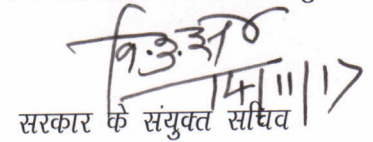 14/11/17
सरकार के संयुक्त सचिव